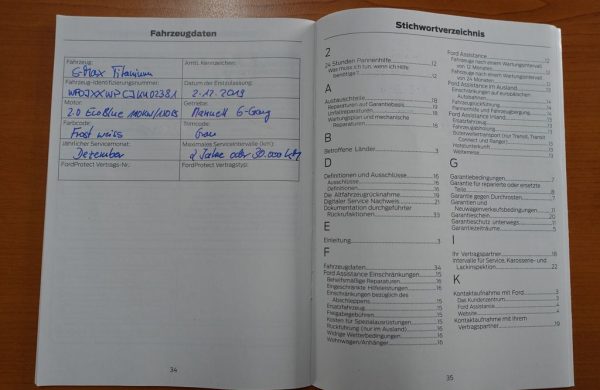 Fahrzeugdaten
Fahrzeug:
S-Max Titanium
Amtl. Kennzeichen:
Fahrzeug-Identifizierungsnummer:
Datum der Erstzulassung:
2.12.2019
Motor:
2.0 EcoBlue 140KW/190PS
Getriebe:
Manuell 6-Gang
Farbcode:
Frost weiss
Trimcode:
Grau
Jährlicher Servicemonat:
Dezember
Maximales Serviceintervalle (km):
2 Jahre oder 30.000 km
FordProtect Vertrags-Nr.:
FordProtect Vertragstyp:
34
Stichwortverzeichnis
2
24 Stunden Pannenhilfe 12
Was muss ich tun, wenn ich Hilfe
benötige? 12
A
Austauschteile 18
Reparaturen auf Garantiebasis 18
Unfallreparaturen 18
Wartungsplan und mechanische
Reparaturen 16
B
Betroffene Länder 3
D
Definitionen und Ausschlüsse 16
Ausschlüsse 16
Definitionen 16
Die Altfahrzeugrücknahme 19
Digitaler Service Nachweis 21
Dokumentation durchgeführter
Rückrufaktionen 33
E
Einleitung 3
F
Fahrzeugdaten 34
Ford Assistance Einschränkungen 15
Behelfsmäßige Reparaturen 16
Eingeschränkte Hilfsleistungen 16
Einschränkungen bezüglich des
Abschleppens 15
Ersatzfahrzeug 15
Freigabegebühren 15
Kosten für Spezialausrüstungen 15
Rückführung (nur im Ausland) 15
Widrige Wetterbedingungen 16
Wohnwagen/Anhänger 16
Ford Assistance 12
Fahrzeuge nach einem Wartungsintervall
von 12 Monaten
Fahrzeuge nach einem Wartungsintervall
von 24 Monaten
Ford Assistance im Ausland
Einschränkungen auf europäischen
Autobahnen
Fahrzeugrückführung
Pannenhilfe und Fahrzeugbergung
Ford Assistance Inland
Ersatzfahrzeug
Fahrzeugabholung
Krankentransport (nur Transit, Transit
Connect und Ranger)
Hotelunterkunft
Weiterreise
G
Garantiebedingungen 7
Garantie für reparierte oder ersetzte
Teile 8
Garantie gegen Durchrosten 7
Garantien und
Neuwagenverkaufsbedingungen 11
Garantieschein 20
Garantieschutz unterwegs 11
Garantiezeiträume 5
I
Ihr Vertragspartner 18
Intervalle für Service, Karosserie- und
Lackinspektion 22
K
Kontaktaufnahme mit Ford 3
Das Kundenzentrum 3
Ford Assistance 3
Website 4
Kontaktaufnahme mit Ihrem
Vertragspartner 19
35